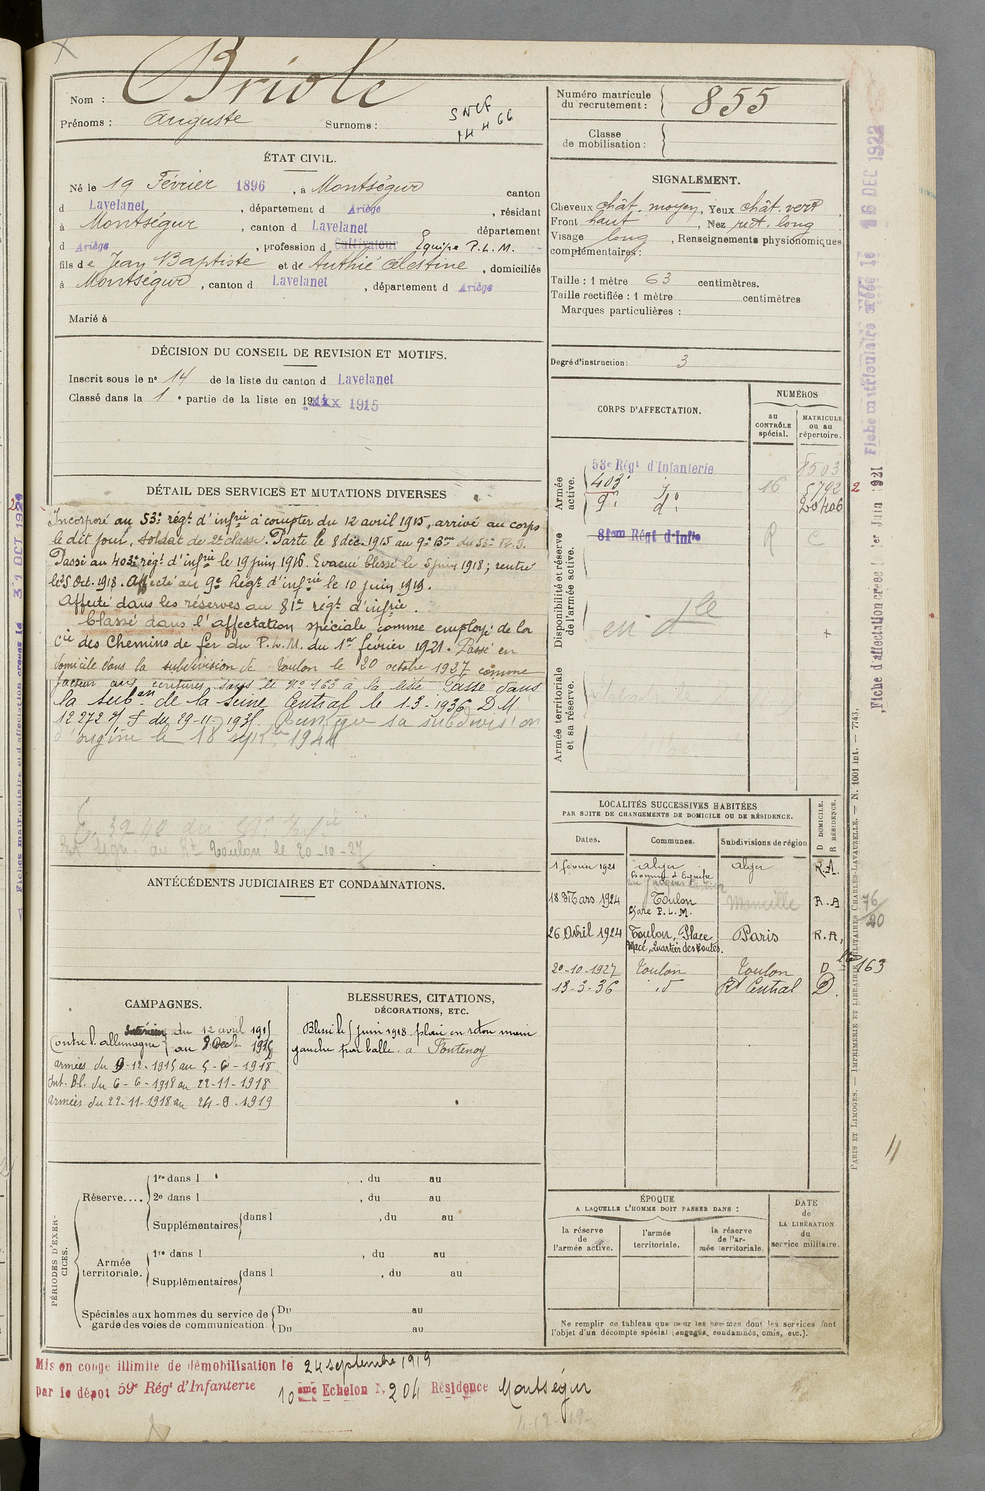 Nom : Briole
Prénoms : Auguste Surnoms :
SNCF
ÉTAT CIVIL.
Né le 19 Février 1896, à Montségur canton
d Lavelanet, département d Ariège, résidant
à Montségur, canton d Lavelanet département
d Ariège, profession de Cultivateur Equipe P.L.M.
fils de Jean Baptiste et de Authié Célestine, domiciliés
à Montségur, canton d Lavelanet, département d Ariège
Marié à
DÉCISION DU CONSEIL DE REVISION ET MOTIFS.
Inscrit sous le n° 14 de la liste du canton d Lavelanet
Classé dans la 1e partie de la liste en 1915
DÉTAIL DES SERVICES ET MUTATIONS DIVERSES
Incorporé au 53e régt d'infrie à compter du 12 avril 1915, arrivé au corps
le dit jour, soldat de 2e classe. Parti le 8 déc. 1915 au 9e Bon du 53e R.I.
Passé au 403e régt d'infrie le 19 juin 1916. Evacué blessé le 5 juin 1918; rentré
le 5 Oct. 1918. Affecté au 9e Régt d'infrie le 10 juin 1919.
Affecté dans les réserves au 81e régt d'infrie.
Classé dans l'affectation spéciale comme employé de la
Cie des Chemins de fer du P.L.M. du 1er février 1921. Passé en
domicile dans la subdivision de Toulon le 20 octobre 1927 comme
facteur aux écritures sous le N° 163 à la liste Passé dans
la subon de la Seine Central le 1-3-1936 D.M.
d'origine le 18
Toulon le 20-10-27
ANTÉCÉDENTS JUDICIAIRES ET CONDAMNATIONS.
CAMPAGNES.
Intérieur du 12 avril 1915
Contre l'allemagne au 8 Dec 1915
armées du 9-12-1915 au 5-6-1918
Int. Bl. du 6-6-1918 au 22-11-1918
armées du 22-11-1918 au 24-9-1919
BLESSURES, CITATIONS,
DÉCORATIONS, ETC.
Blessé le 5 juin 1918 plaie en séton main
gauche par balle à Fontenoy
PÉRIODES D'EXERCICES.
Réserve....
1re dans l , du au
2e dans l , du au
Supplémentaires dans l , du au
Armée
territoriale.
1re dans l , du au
Supplémentaires dans l , du au
Spéciales aux hommes du service de
garde des voies de communication
Du au
Du au
Mis en congé illimité de démobilisation le 24 septembre 1919
par le dépôt 59e Régt d'Infanterie 10eme Echelon N. 204 Résidence Montségur
Numéro matricule
du recrutement : 855
Classe
de mobilisation :
SIGNALEMENT.
Cheveux chât. moyen, Yeux chât. vert
Front haut, Nez rect. long
Visage long, Renseignements physionomiques
complémentaires :
Taille : 1 mètre 63 centimètres.
Taille rectifiée : 1 mètre centimètres
Marques particulières :
Degré d'instruction : 3
CORPS D'AFFECTATION.
NUMÉROS
au
CONTRÔLE
spécial.
MATRICULE
ou au
répertoire.
Armée
active.
53e Régt d'Infanterie 8503
403e 16 5792
9e do
Disponibilité et réserve
de l'armée active.
81em Régt d'Infie R C
en dle
Armée territoriale
et sa réserve.
LOCALITÉS SUCCESSIVES HABITÉES
PAR SUITE DE CHANGEMENTS DE DOMICILE OU DE RÉSIDENCE.
Dates. Communes. Subdivisions de région D DOMICILE. R RÉSIDENCE.
1 février 1921 Alger Alger R.A.
homme d'Equipe
18 Mars 1924 Toulon Marseille R.A
Gare P.L.M.
26 Avril 1924 Toulon, Place Paris R.A,
Macé, Quartier des Routes.
20-10-1927 Toulon Toulon D 163
13-3-36 id Rt Central D.
ÉPOQUE
A LAQUELLE L'HOMME DOIT PASSER DANS :
la réserve
de
l'armée active.
l'armée
territoriale.
la réserve
de l'ar-
mée territoriale.
DATE
de
LA LIBÉRATION
du
service militaire.
Ne remplir ce tableau que pour les hommes dont les services font
l'objet d'un décompte spécial (engagés, condamnés, omis, etc.).
Fiche d'affectation créée le 1er Juin 1921
Fiche matriculaire créée le 16 DEC 1922
PARIS ET LIMOGES. — IMPRIMERIE ET LIBRAIRIE MILITAIRES CHARLES-LAVAUZELLE. — N. 1001 int. — 7743.